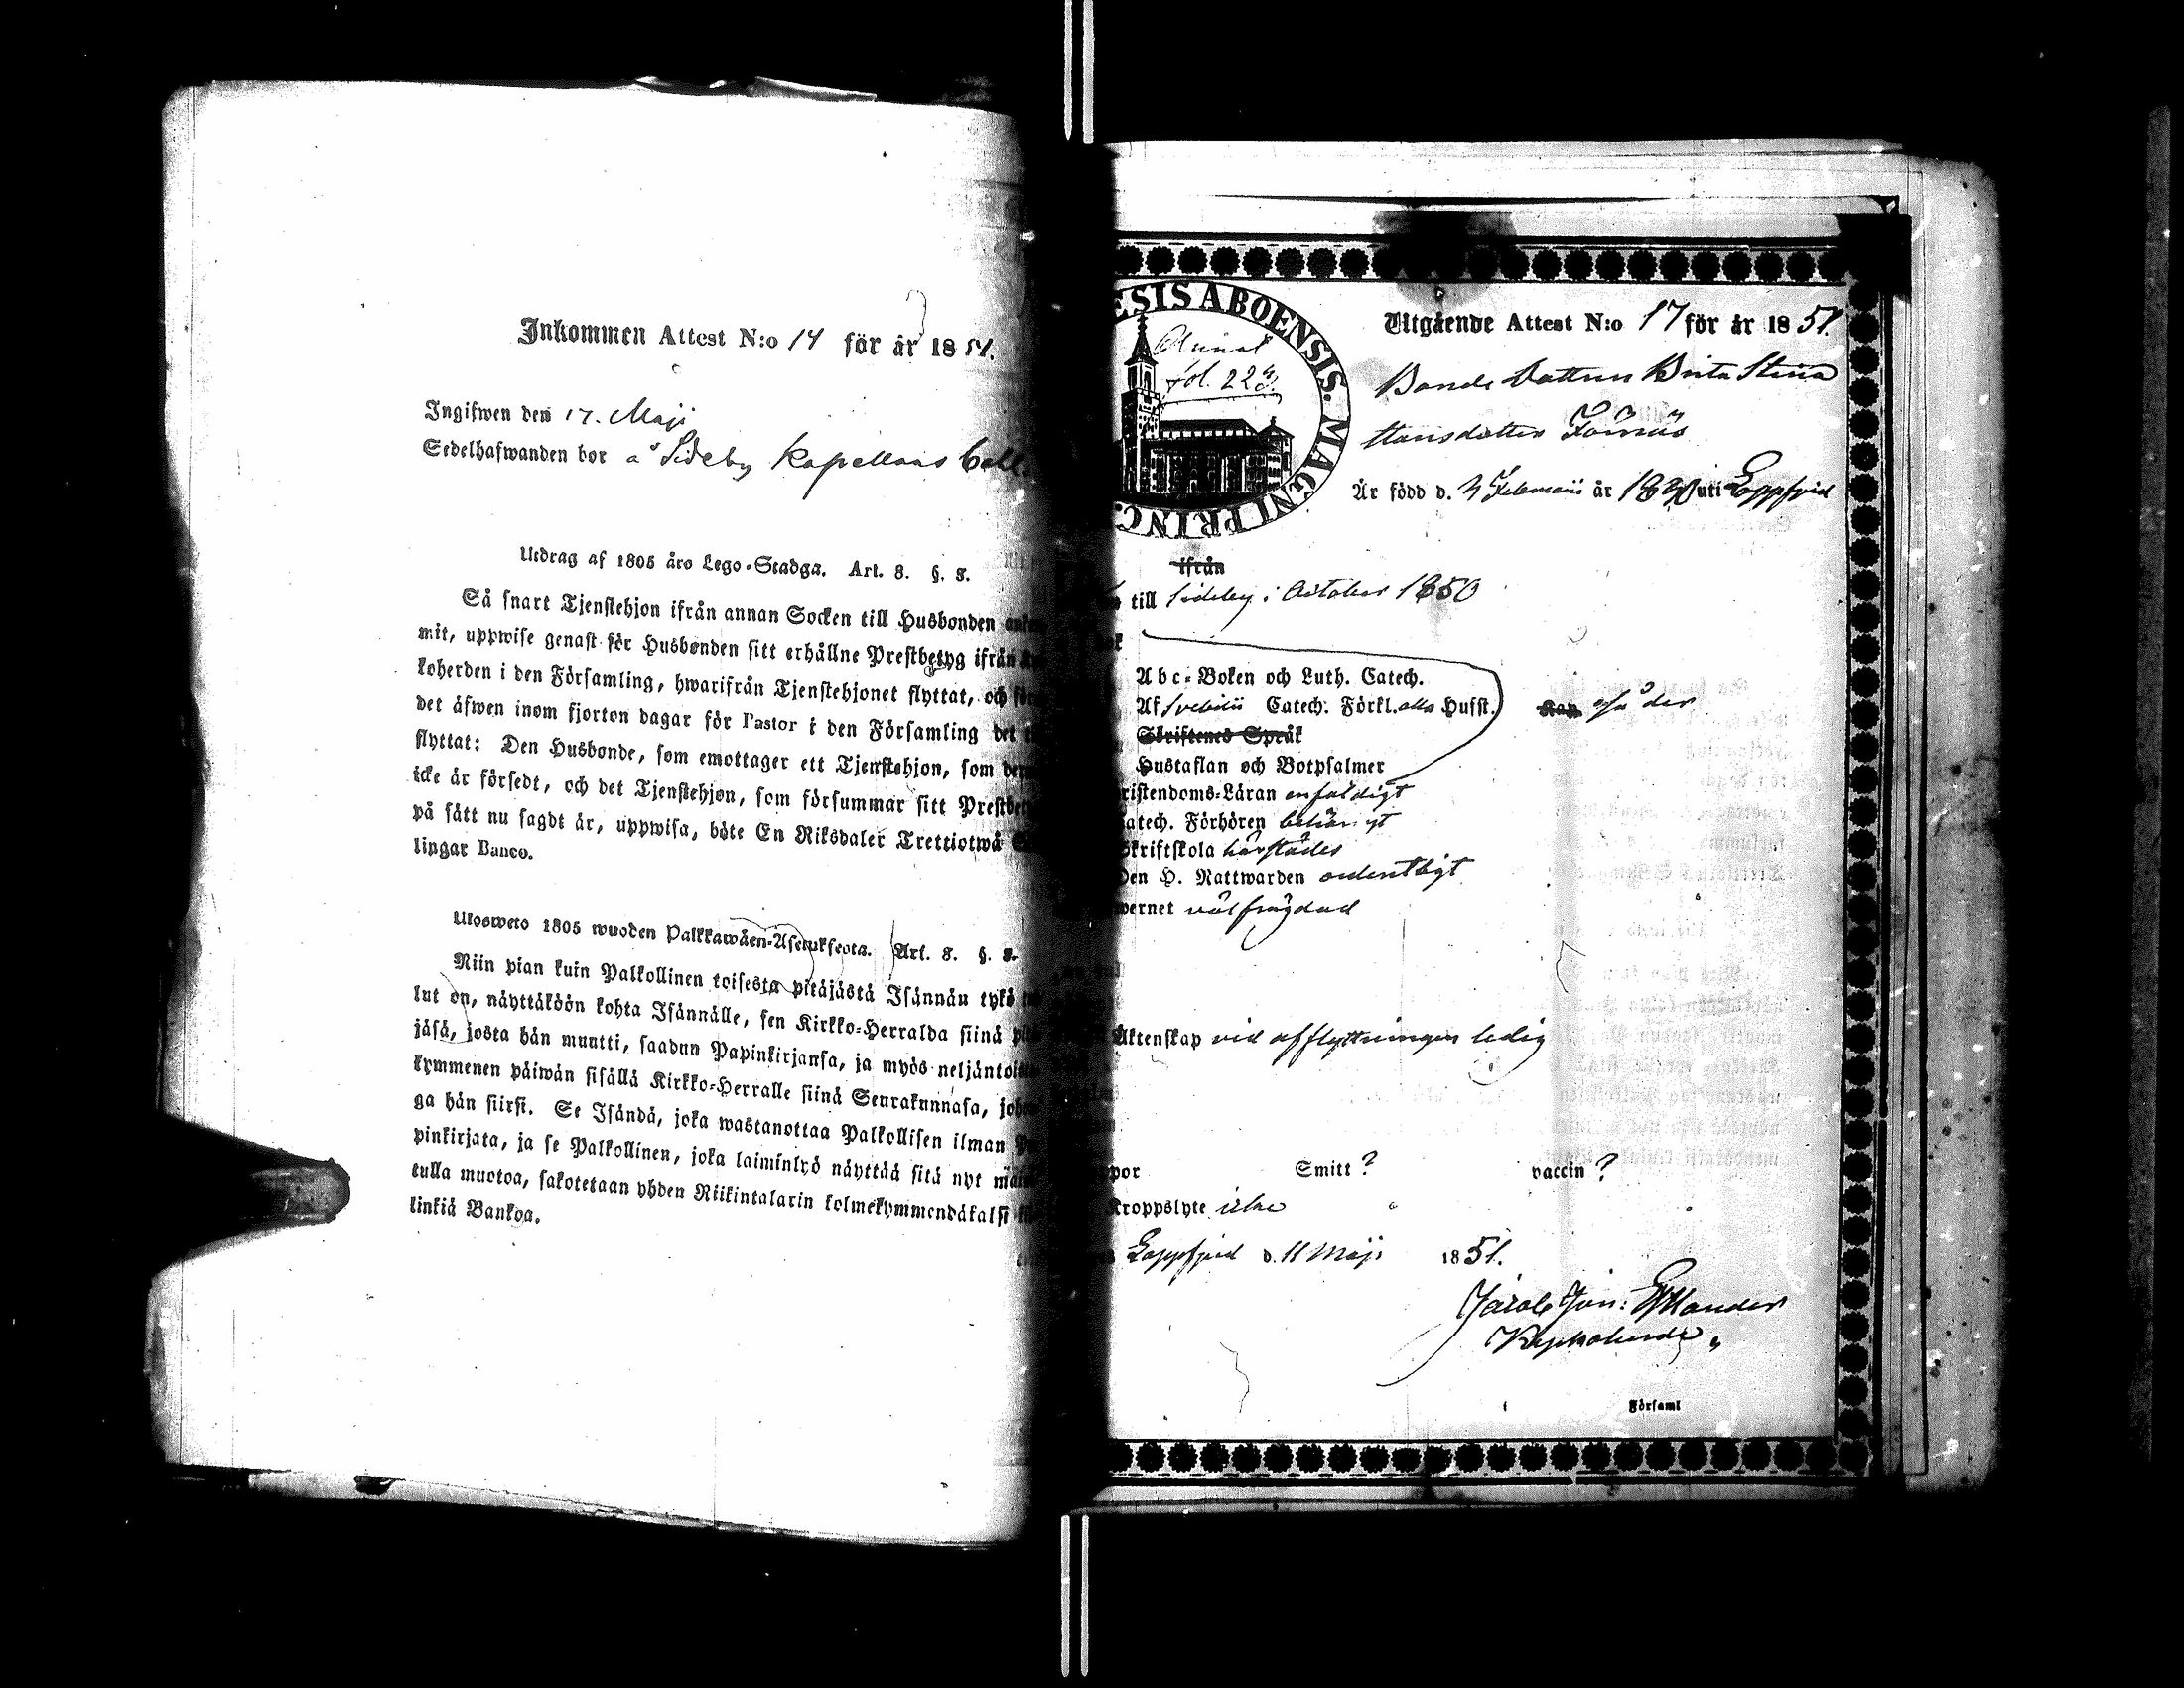 Inkommen Attest N:o 14 för år 1851.
Ingifwen den 17. Maji
Sedelhafwanden bor å Sideby Kapellans Boll.
Utdrag af 1805 års Lego-Stadga. Art. 8. §. 8.
Så snart Tjenstehjon ifrån annan Socken till Husbonden
mit, uppwise genast för Husbonden sitt erhållne Prestbetyg ifrån
koherden i den Församling, hwarifrån Tjenstehjonet flyttat, och
det äfwen inom fjorton dagar för Pastor i den Församling det
flyttat: Den Husbonde, som emottager ett Tjenstehjon, som
icke är försedt, och det Tjenstehjon, som försummar sitt
på sätt nu sagdt är, uppwisa, böte En Riksdaler Trettiotwå
lingar Banco.
Ulosweto 1805 wuoden Palkkawäen-Asetuksesta. Art. 8. §. 8.
Niin pian kuin Palkollinen toisesta pitäjästä Isännän tykö
lut on, näyttäköön kohta Isännälle, sen Kirkko-Herralda siinä
jäsä, josta hän muutti, saadun Papinkirjansa, ja myös
kymmenen päiwän sisällä Kirkko-Herralle siinä Seurakunnasa,
ga hän siirsi. Se Isändä, joka wastanottaa Palkollisen ilman
pinkirjata, ja se Palkollinen, joka laiminlyö näyttää sitä nyt
tulla muotoa, sakotetaan yhden Riikintalarin kolmekymmendäkaksi
linkiä Bankoa.
ESIS ABOENSIS. MAGNI PRINC.
fol. 223.
Utgående Attest N:o 17 för år 1851.
Bonde Dottren Brita Stina
Hansdotter
Är född d. 3 Februarii år 1830 uti Lappfjerd
ifrån
till Sideby i October 1850
Abc-Boken och Luth. Catech.
Af Svebilii Catech. Förkl. Husst.
Skriftenes Språk
Hustaflan och Botpsalmer
ristendoms-Läran enfaldigt
atech. Förhören
kriftskola härstädes
Den H. Nattwarden ordentligt
wernet välfrägdad
Äktenskap vid afflyttningen ledig
por Smitt ? vaccin ?
Kroppslyte icke
Lappfjerd d. 11 Maji 1851.
Kyrkoherde
Församl